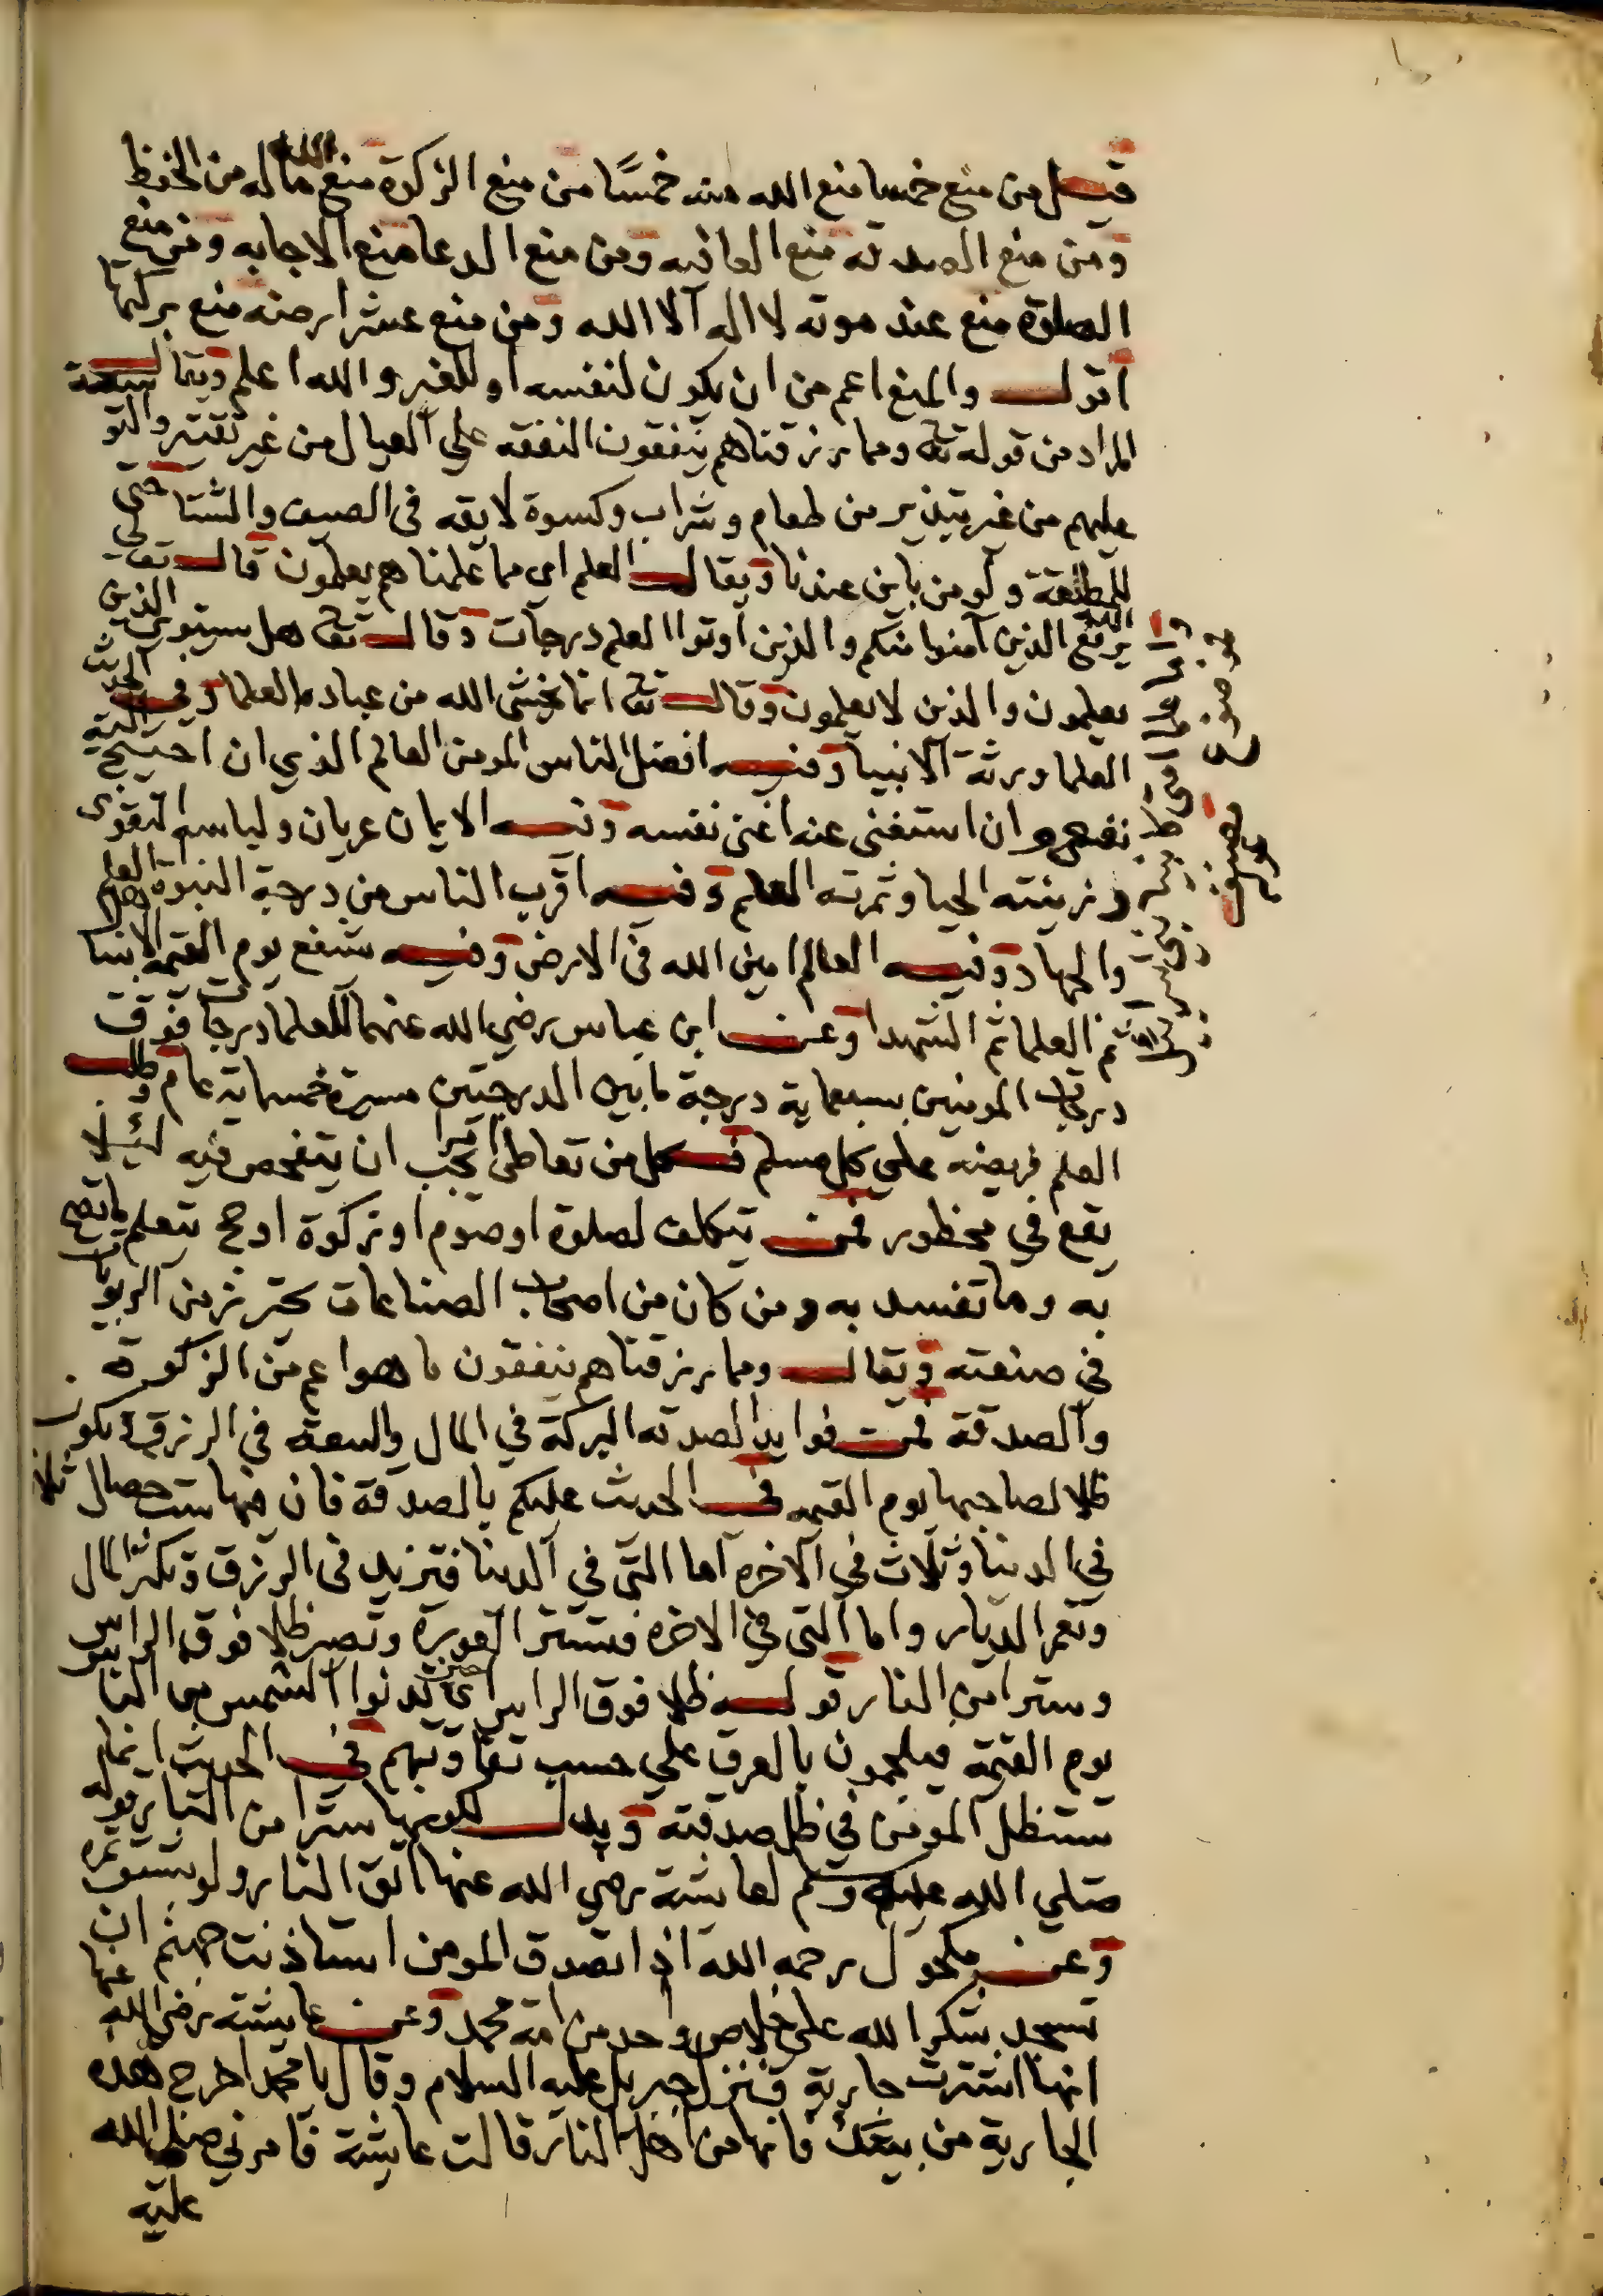 قيل من منع خمسا منع الله منه خمسًا من منع الزكوة منع الله ماله من الحفظ
ومن منع الصدقه منع العافيه ومن منع الدعا منع الاجابه ومن منع
الصلوة منع عند موته لا اله الا الله ومن منع عشر ارضه منع بركتها
اقول والمنع اعم من ان يكون لنفسه او للغير والله اعلم ويقال
المراد من قوله تعا ومما رزقناهم ينفقون النفقه علي العيال من غير تقتير والتو سعة
عليهم من غير تبذير من طعام وشراب وكسوة لايقه في الصيف والشتا حتي
للمطلقة ولو من باين عندنا ويقال العلم اي مما علمناهم يعلمون قال تعالي
يرفع الله الذين آمنوا منكم والذين اوتوا العلم درجات وقال تعا هل يستوي الذين
يعلمون والذين لا يعلمون وقال تعا انما يخشي الله من عباده العلما وفي الحديث
العلما ورثة الانبيا وفيه افضل الناس المومن العالم الذي ان احتيج اليه
نفع وان استغني عنه اغني نفسه وفيه الايمان عريان ولباسه التقوي
وزينته الحيا وثمرته العلم وفيه اقرب الناس من درجة النبوة اهل العلم
والجهاد وفيه العالم امين الله في الارض وفيه يشفع يوم القيمه الانبيا
ثم العلما ثم الشهدا وعن ابن عباس رضي الله عنهما للعلما درجات فوق
درجات المومنين بسبعماية درجة ما بين الدرجتين مسيرة خمسماية عام وطلب
العلم فريضه علي كل مسلم فكل من تعاطي امرا يجب ان يتفحص فيه ليلا
يقع في محظور فمن تكلف لصلوة او صوم او زكوة او حج يتعلم ما تصح
به وما تفسد به ومن كان من اصحاب الصناعات يحترز من الربوا
في صنعته ويقال ومما رزقناهم ينفقون ما هو اعم من الزكوة
والصدقة فمن فوايد الصدقه البركة في المال والسعة في الرزق ويكون
ظلا لصاحبها يوم القيمه في الحديث عليكم بالصدقة فان فيها ست خصال ثلاث
في الدنيا وثلاث في الاخره اما التي في الدنيا فتزيد في الرزق وتكثر المال
وتعمر الديار واما التي في الاخره فتستر العورة وتصير ظلا فوق الراس
وسترا من النار قوله ظلا فوق الراس اي حين تدنوا الشمس من الناس
يوم القيمة فيلجمون بالعرق علي حسب تفاوتهم في الحديث انما
يستظل المومن في ظل صدقته ويدل لكونها سترا من النار قوله
صلي الله عليه وسلم لعايشة رضي الله عنها اتق النار ولو بشق تمره
وعن مكحول رحمه الله اذا تصدق المومن استاذنت جهنم ان
تسجد شكرا لله علي خلاص واحد من امة محمد وعن عايشة رضي الله عنها
انها اشترت جارية فنزل جبريل عليه السلام وقال يا محمد اخرج هذه
الجارية من بيتك فانها من اهل النار قالت عايشة فامرني صلي الله
عليه